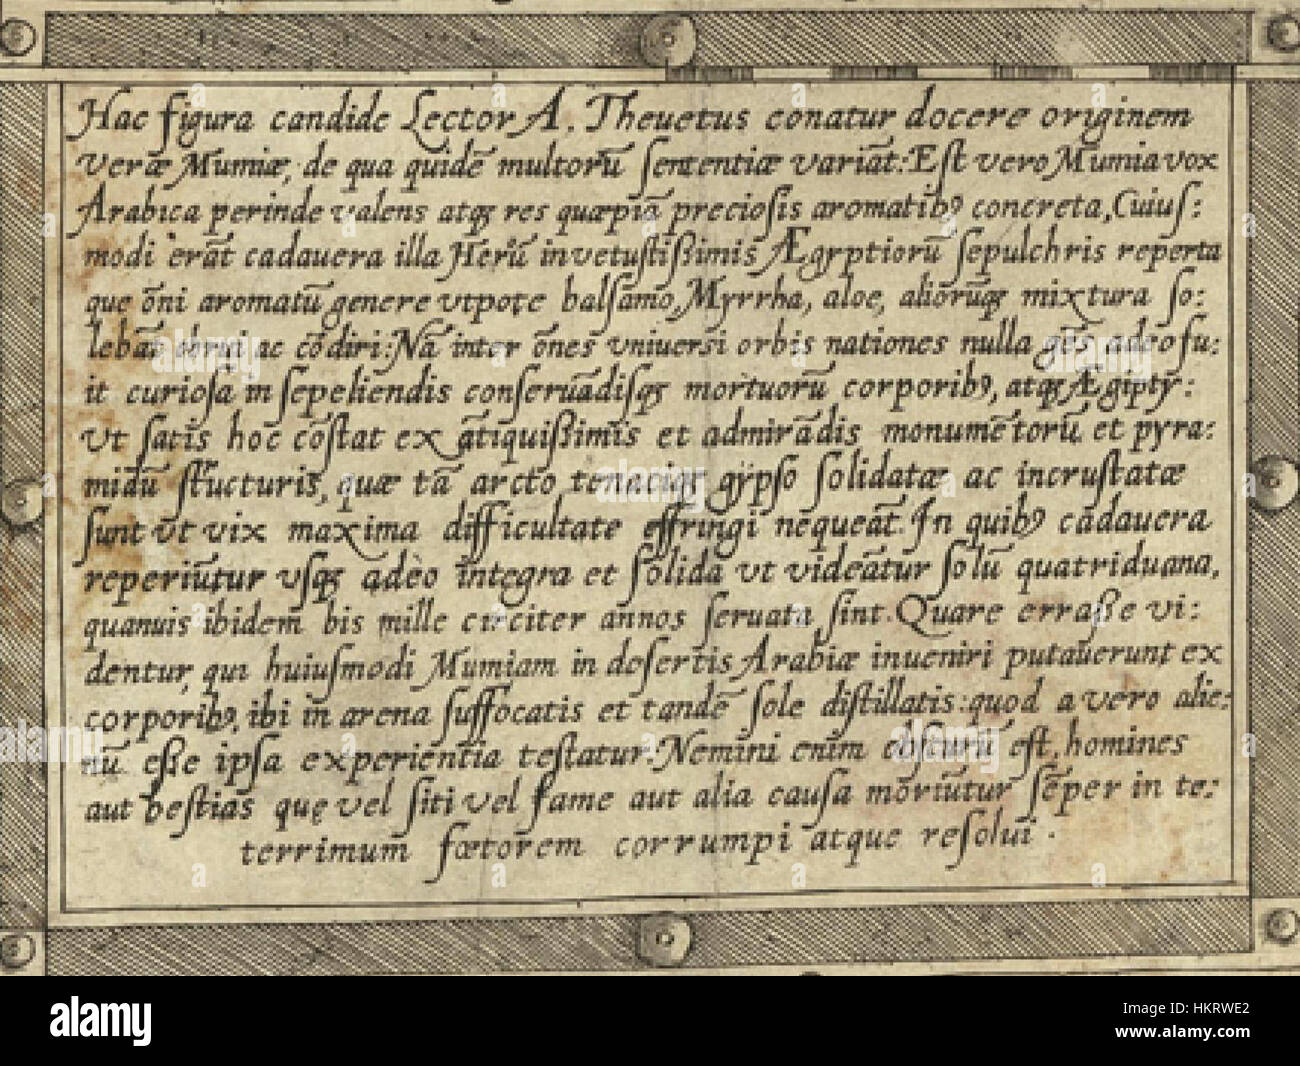 Hac figura candide Lector A. Theuetus conatur docere originem
veræ Mumiæ, de qua quidē multorū sententiæ variāt: Est vero Mumia vox
Arabica perinde valens atqꝫ res quæpiā preciosis aromatibꝰ concreta, Cuius:
modi erāt cadauera illa Herū in vetustissimis Ægyptiorū sepulchris reperta
que ōni aromatū genere vtpote balsamo, Myrrha, aloe, aliorūqꝫ mixtura so:
lebāt obrui ac cōdiri: Nā inter ōnes vniuersi orbis nationes nulla gēs adeo fu:
it curiosa in sepeliendis conseruādisqꝫ mortuorū corporibꝰ, atqꝫ Ægiptÿ:
Vt satis hoc cōstat ex ātiquissimis et admirādis monumētorū et pyra:
midū structuris, quæ tā arcto tenaciqꝫ gÿpso solidatæ ac incrustatæ
sunt vt vix maxima difficultate effringi nequeāt. In quibꝰ cadauera
reperiūtur vsqꝫ adèo integra et solida vt videātur solū quatriduana,
quanuis ibidem bis mille circiter annos seruata sint. Quare errasse vi:
dentur, qui huiusmodi Mumiam in desertis Arabiæ inueniri putauerunt ex
corporibꝰ, ibi in arena suffocatis et tandē sole distillatis: quod a vero alie:
nū esse ipsa experientia testatur: Nemini enim obscurū est, homines
aut bestias quę vel siti vel fame aut alia causa moriūtur sēper in te:
terrimum fœtorem corrumpi atque resolui.
alamy
Image ID: HKRWE2
www.alamy.com